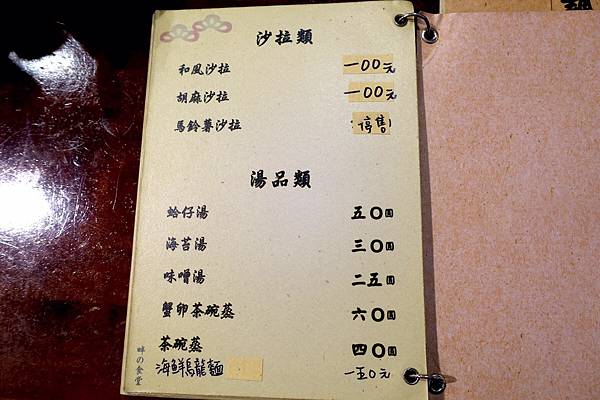 沙拉類
和風沙拉 一００元
胡麻沙拉 一００元
馬鈴薯沙拉 停售
湯品類
蛤仔湯 五０圓
海苔湯 三０圓
味噌湯 二五圓
蟹卵茶碗蒸 六０圓
茶碗蒸 四０圓
海鮮烏龍麵 一五０元
畔の食堂